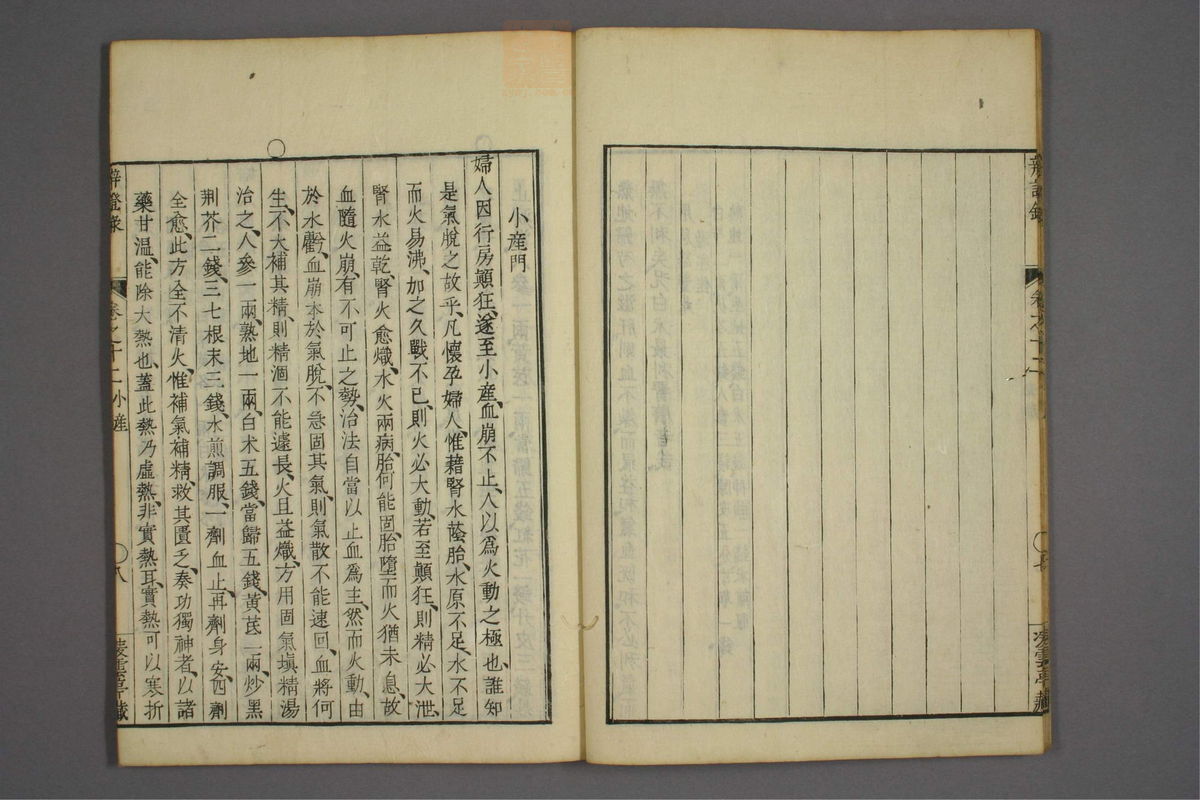 辨證錄
卷之十二
凌雲亭藏
小產門
婦人因行房顛狂、遂至小產、血崩不止、人以爲火動之極也、誰知
是氣脫之故乎、凡懷孕婦人、惟藉腎水蔭胎、水原不足、水不足
而火易沸、加之久戰不已、則火必大動、若至顛狂、則精必大泄、
腎水益乾、腎火愈熾、水火兩病、胎何能固、胎墮而火猶未息、故
血隨火崩、有不可止之勢、治法自當以止血爲主、然而火動、由
於水虧、血崩本於氣脫、不急固其氣、則氣散不能速回、血將何
生、不大補其精、則精涸不能遽長、火且益熾、方用固氣塡精湯
治之、人參一兩、熟地一兩、白术五錢、當歸五錢、黃芪一兩、炒黑
荆芥二錢、三七根末三錢、水煎調服、一劑血止、再劑身安、四劑
全愈、此方全不清火、惟補氣補精、救其匱乏、奏功獨神者、以諸
藥甘溫、能除大熱也、蓋此熱乃虛熱、非實熱耳、實熱可以寒折
辨證錄
卷之十二 小產
八
凌雲亭藏